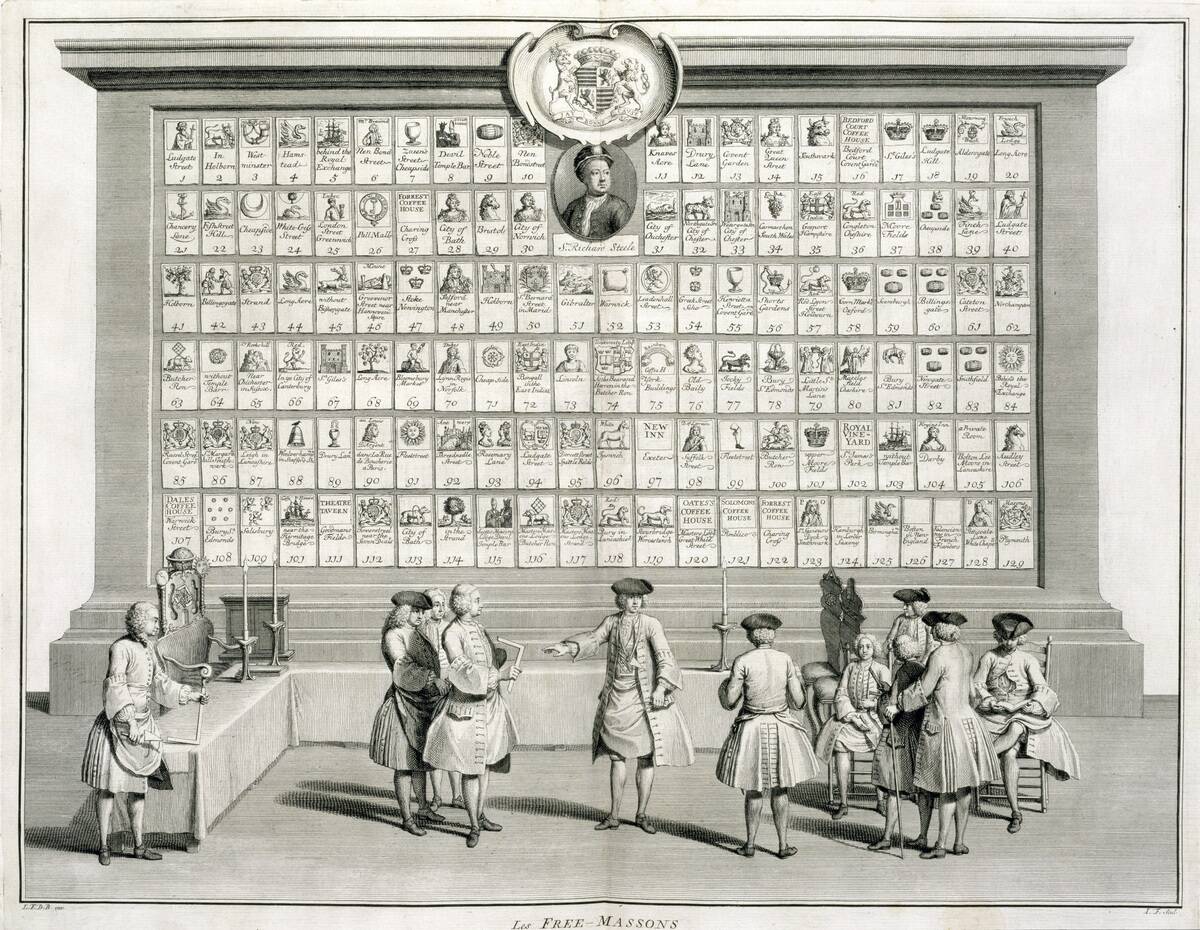 Ludgate
Street
1
In
Holborn
2
West
minster
3
Hams-
tead
4
behind the
Royal
Exchange
5
New Bond
Street
6
Queen's
Street
Cheapside
7
Devil
Temple Bar
8
Noble
Street
9
New
Bondstreet
10
Knaves
Acre
11
Drury
Lane
12
Covent
Garden
13
Great
Queen
Street
14
Southwark
15
BEDFORD
COURT
COFFEE
HOUSE
Bedford
Court
Covent Garden
16
St. Giles's
17
Ludgate
Hill
18
Aldersgate
19
French
Lodge
Long Acre
20
Chancery
Lane
21
Fish Street
Hill
22
Cheapside
23
White Cross
Street
24
London
Street
Greenwich
25
Pall Mall
26
FORREST
COFFEE
HOUSE
Charing
Cross
27
City of
Bath
28
Bristol
29
City of
Norwich
30
Sr. Richard Steele
City of
Chichester
31
City of
Chester
32
City of
Chester
33
Carmarthen
South Wales
34
Gosport
Hampshire
35
Congleton
Cheshire
36
Moore
Fields
37
Cheapside
38
Finch
Lane
39
Ludgate
Street
40
Holborn
41
Billingsgate
42
Strand
43
Long Acre
44
without
Bishopgate
45
Grosvenor
Street near
Hannover
Square
46
Stoke
Newington
47
Salford
near
Manchester
48
Holborn
49
St. Bernard
Street
in Madrid
50
Gibralter
51
Warwick
52
Leadenhall
Street
53
Greek Street
Soho
54
Henrietta
Street
Covent Gard
55
Shorts
Gardens
56
Red Lyon
Street
Holborn
57
Corn Market
Oxford
58
Scarburgh
59
Billings
gate
60
Cateton
Street
61
Northampton
62
Butcher
Row
63
without
Temple
Barr
64
Near
Chichester
in Sussex
65
Red
In ye City of
Canterbury
66
St. Giles's
67
Long Acre
68
Bloomsbury
Market
69
Duke
Lynn Regis
Norfolk
70
Cheap Side
71
East Indies
Bengall
in the
East Indies
72
Lincoln
73
Butcher Row
74
Rainbow
Coffee H
York
Buildings
75
Old
Baily
76
Jocky
Fields
77
Bury
St. Edmonds
78
Little St.
Martins
Lane
79
Cheshire
80
Bury
St. Edmonds
81
Newgate
Street
82
Smithfield
83
Behi'd the
Royal
Exchange
84
Russel Street
Covent Gard
85
St. Margarets
hill Southwark
86
Leigh in
Lancashire
87
88
Drury Lane
89
dans La Rue
de Boucherie
a Paris
90
Fleetstreet
91
Breadnedle
Street
92
Rosemary
Lane
93
Ludgate
Street
94
Dorset Street
Spittle Fields
95
White
Ipswich
96
NEW
INN
Exeter
97
Suffolk
Street
98
Fleetstreet
99
Butcher
Row
100
upper
Moore
Fields
101
ROYAL
VINE-
YARD
St. James's
Park
102
without
Temple Bar
103
Derby
104
a Private
Room
Bolton Lee
Moons in
Lancashire
105
Ludley
Street
106
DALES
COFFEE
HOUSE
Warwick
Street
107
Bury St.
Edmonds
108
Salsbury
109
near the
Hermitage
Bridge
101
THEATRE
TAVERN
Goodmans
Fields
111
Tower street
near the
Seven Dials
112
City of
Bath
113
in the
Strand
114
115
116
117
Red
Bury in
Lancashire
118
Stourbridge
Worcestersh
119
OATES'S
COFFEE
HOUSE
120
SOLOMONS
COFFEE
HOUSE
Pimblico
121
FORREST
COFFEE
HOUSE
Charing
Cross
122
Southwark
123
Hamburgh
in Lower
Saxony
124
Birmingham
125
Boston
in New
England
126
Valenciennes
in
French
Flanders
127
Whitegate
Lane
White Chapel
128
Plymouth
129
L.F.D.B. inv.
I. F. scul.
Les FREE-MASSONS